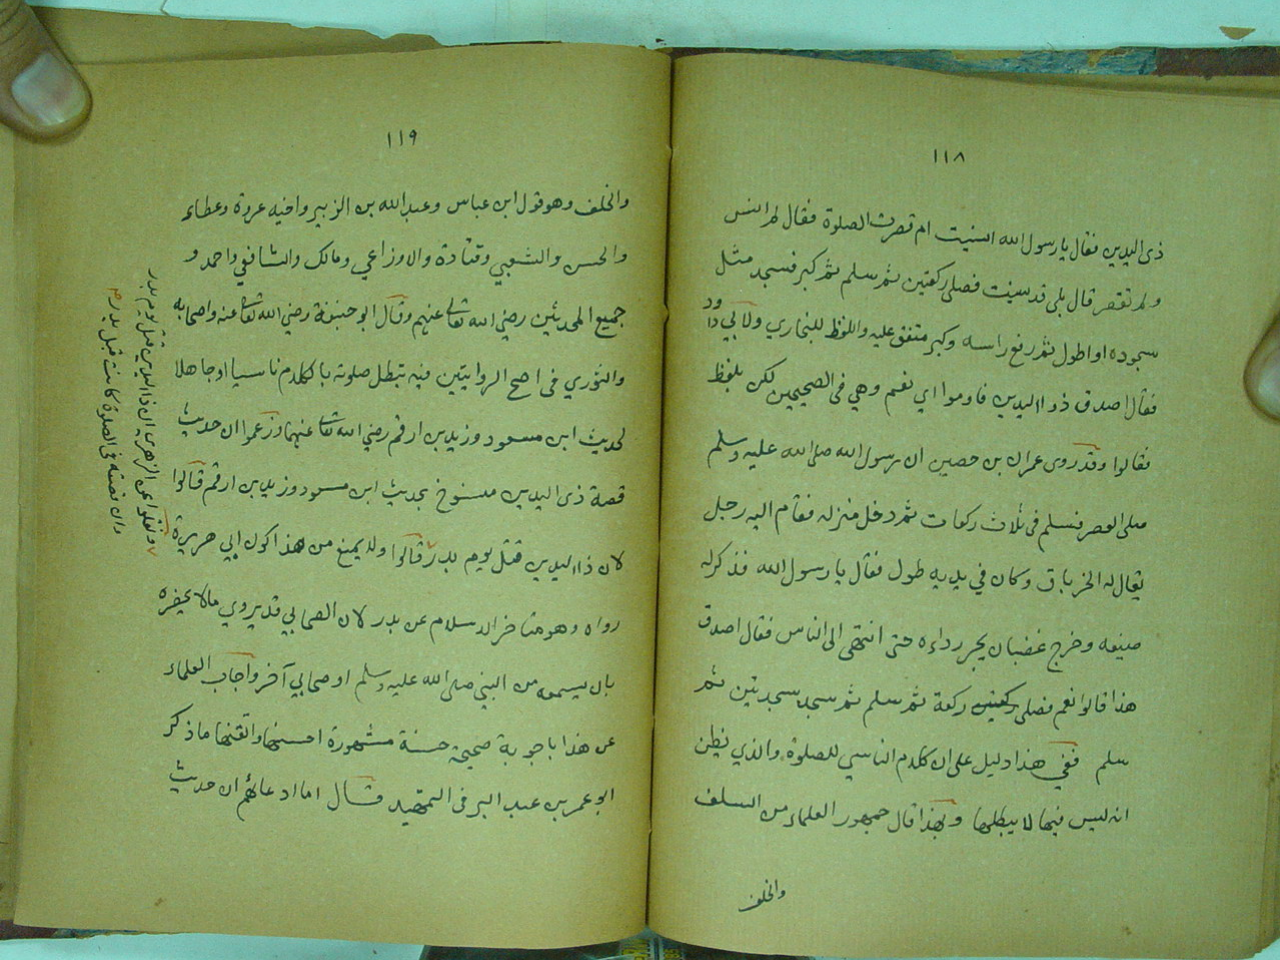 ١١٨
ذى اليدين فقال يا رسول الله انسيت ام قصرت الصلوة فقال لم انس
ولم تقصر قال بلى قد نسيت فصلى ركعتين ثم سلم ثم كبر فسجد مثل
سجوده او اطول ثم رفع راسه وكبر متفق عليه واللفظ للبخاري ولابي داود
فقال اصدق ذو اليدين فاوموا اي نعم وهي فى الصحيحين لكن بلفظ
فقالوا وقد روى عمران بن حصين ان رسول الله صلى الله عليه وسلم
صلى العصر فسلم فى ثلاث ركعات ثم دخل منزله فقام اليه رجل
يقال له الخرباق وكان في يديه طول فقال يا رسول الله فذكر له
صنيعه وخرج غضبان يجر رداءه حتى انتهى الى الناس فقال اصدق
هذا قالوا نعم فصلى ركعتين ركعة ثم سلم ثم سجد سجدتين ثم
سلم ففي هذا دليل على ان كلام الناسي للصلوة والذي يظن
انه ليس فيها لا يبطلها وبهذا قال جمهور العلماء من السلف
والخلف
١١٩
والخلف وهو قول ابن عباس وعبد الله بن الزبير واخيه عروة وعطاء
والحسن والشعبي وقتادة والاوزاعي ومالك والشافعي واحمد و
جميع المحدثين رضي الله تعالى عنهم وقال ابو حنيفة رضي الله تعالى عنه واصحابه
والثوري فى اصح الروايتين فيه تبطل صلوته بالكلام ناسيا او جاهلا
لحديث ابن مسعود وزيد بن ارقم رضي الله تعالى عنهما وزعموا ان حديث
قصة ذى اليدين منسوخ بحديث ابن مسعود وزيد بن ارقم قالوا
لان ذا اليدين قتل يوم بدر قالوا ولا يمنع من هذا كون ابي هريرة
رواه وهو متاخر الاسلام عن بدر لان الصحابي قد يروي مالا يحضره
بان يسمعه من النبي صلى الله عليه وسلم او صحابي آخر واجاب العلماء
عن هذا باجوبة صحيحة حسنة مشهورة احسنها واتقنها ما ذكر
ابو عمر بن عبد البر فى التمهيد قال اما ادعائهم ان حديث
ونقلوا عن الزهري ان ذا اليدين قتل يوم بدر
وان قصته فى الصلوة كانت قبل بدر